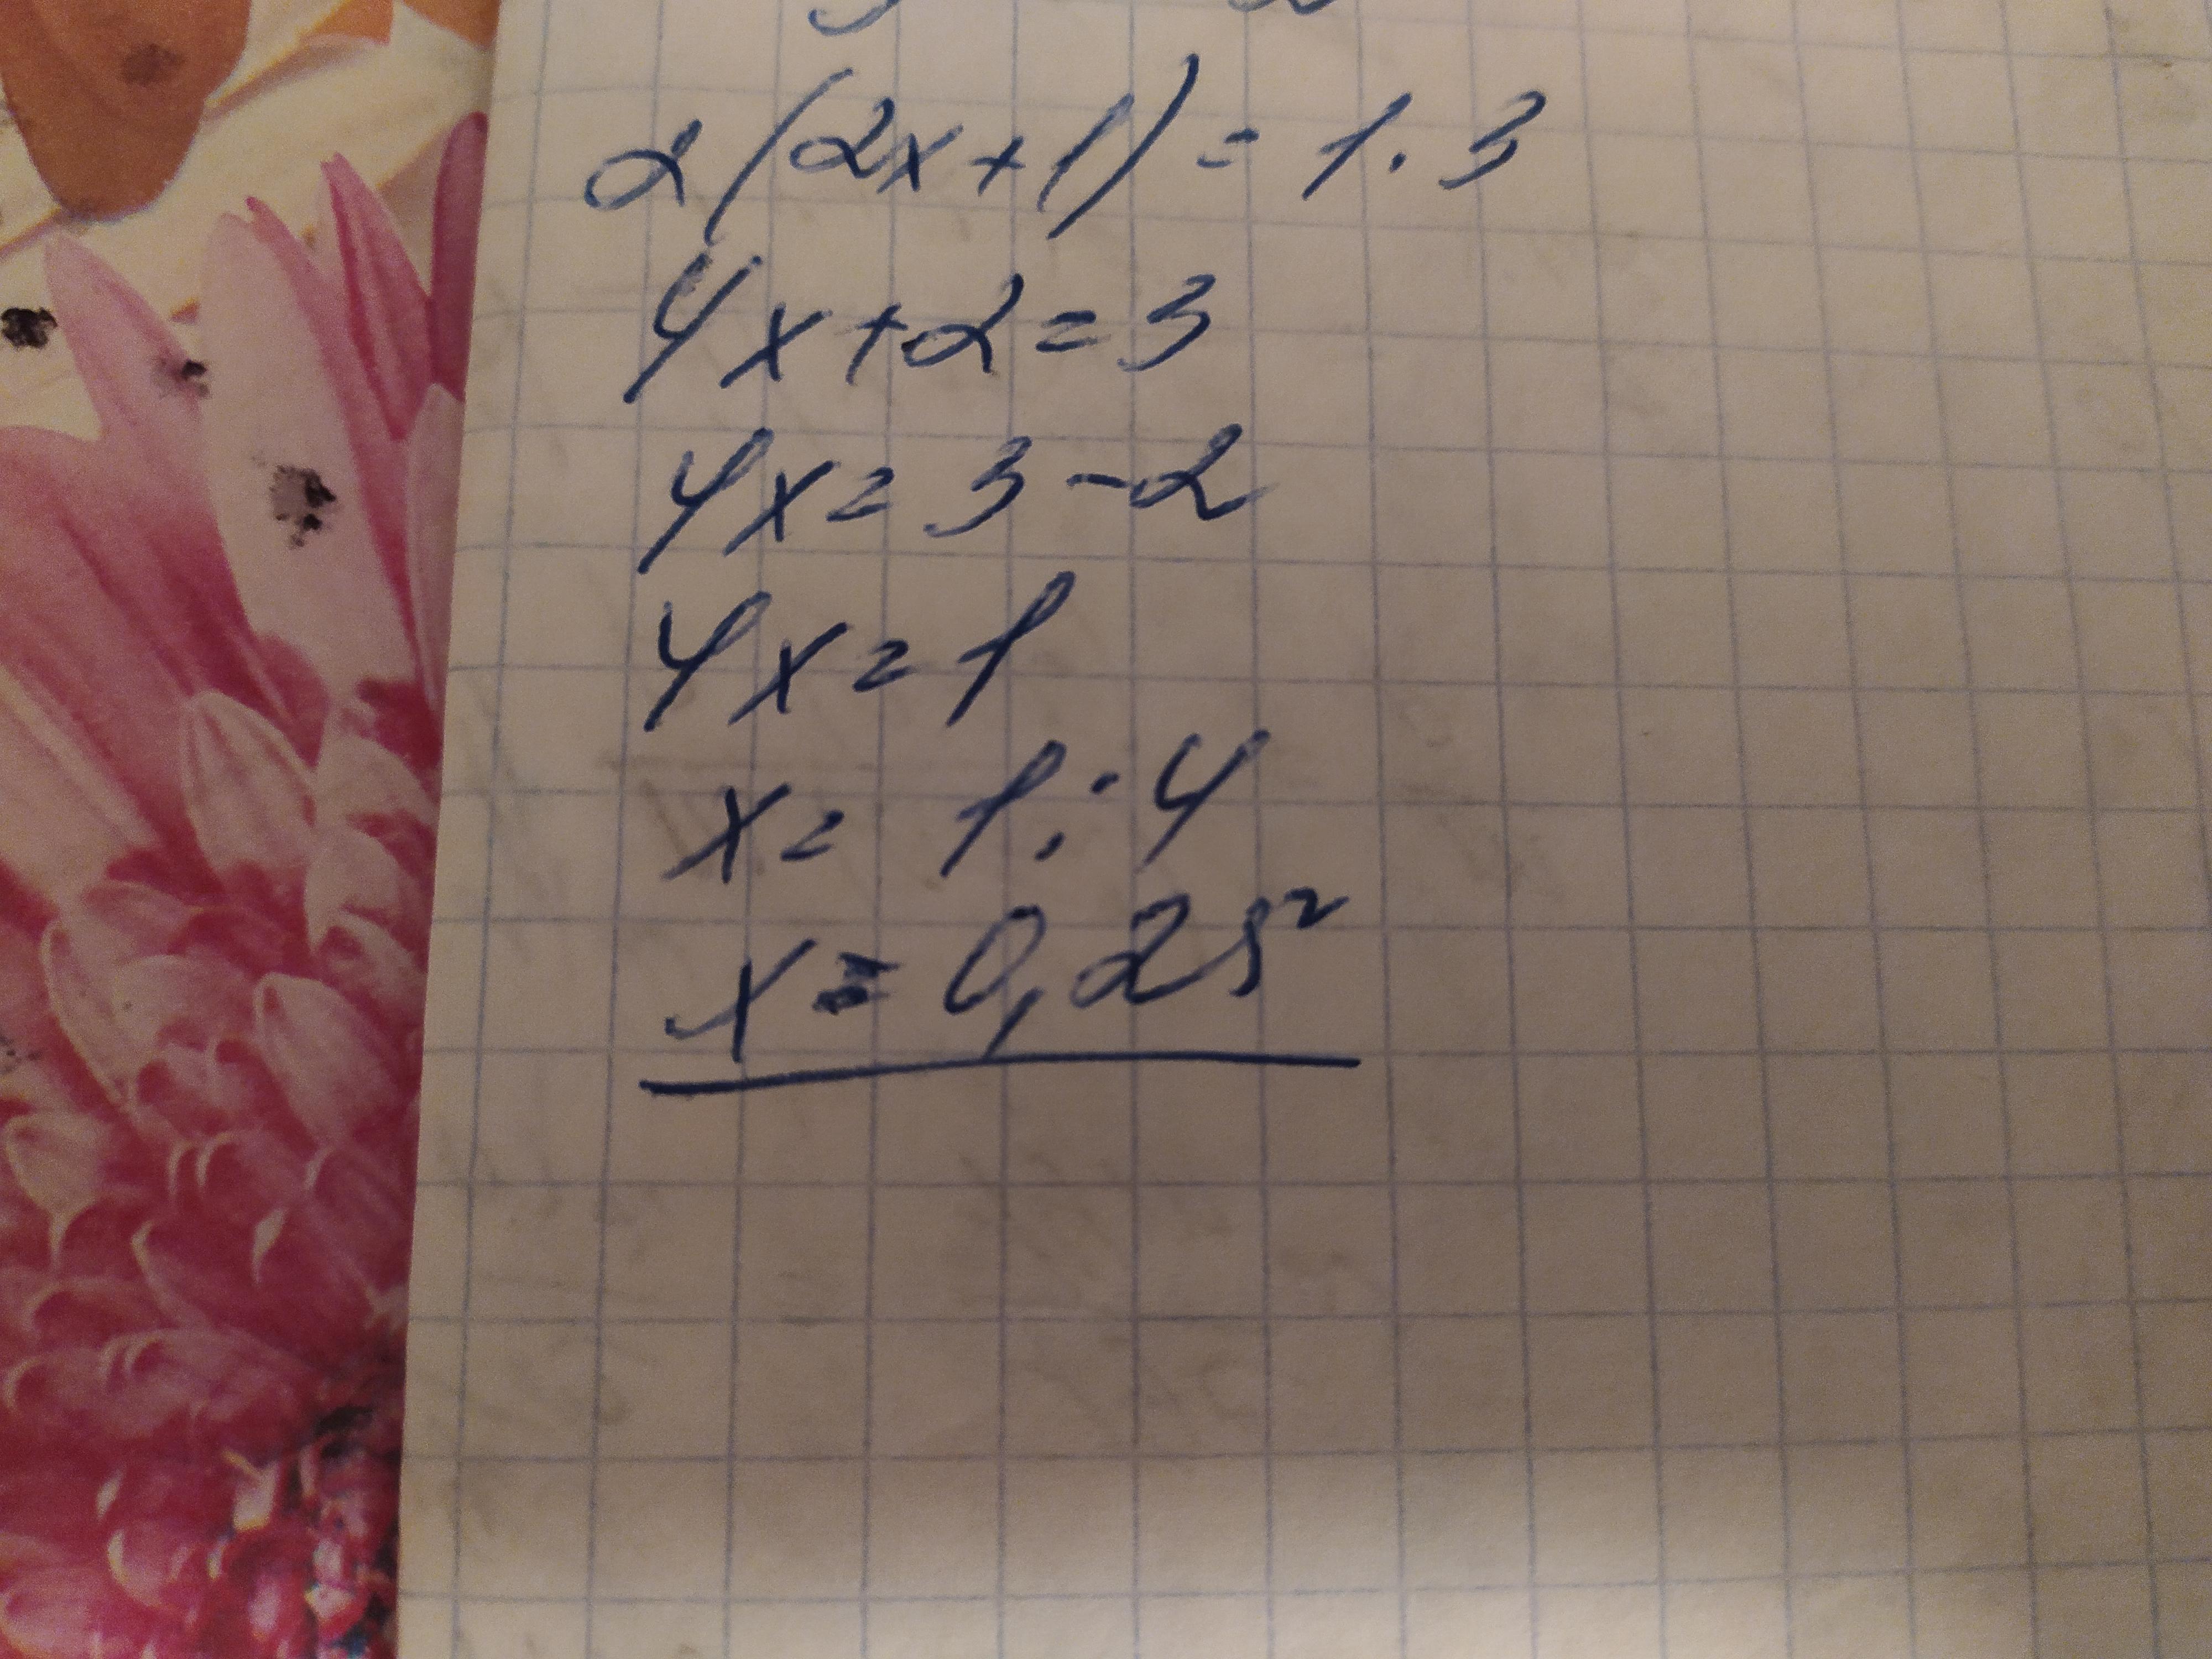 2(2x+1)=1·3
4x+2=3
4x=3-2
4x=1
x=1:4
x=0,25